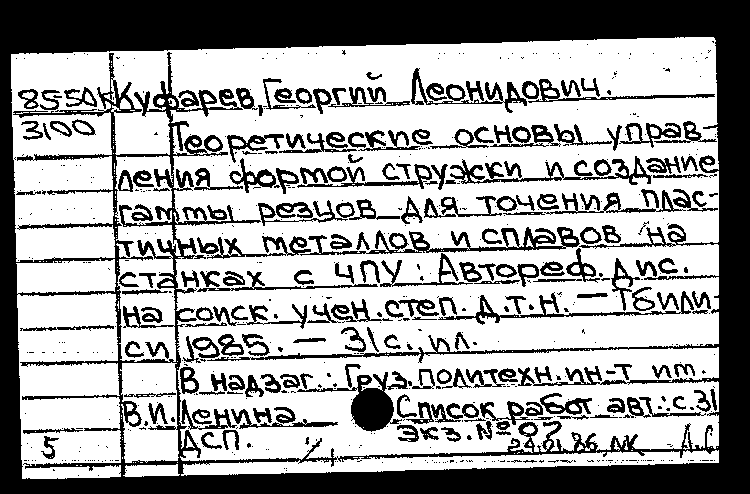 8550К Куфарев, Георгий Леонидович.
3100 Теоретические основы управ-
ления формой стружки и создание
гаммы резцов для точения плас-
тичных металлов и сплавов на
станках с ЧПУ: Автореф. дис.
на соиск. учен. степ. д.т.н. — Тбили-
си, 1985. — 31с., ил.
В надзаг.: Груз. политехн. ин-т им.
В.И. Ленина. Список работ авт.: с.31
5 ДСП. Экз. № 07
24.01.86,